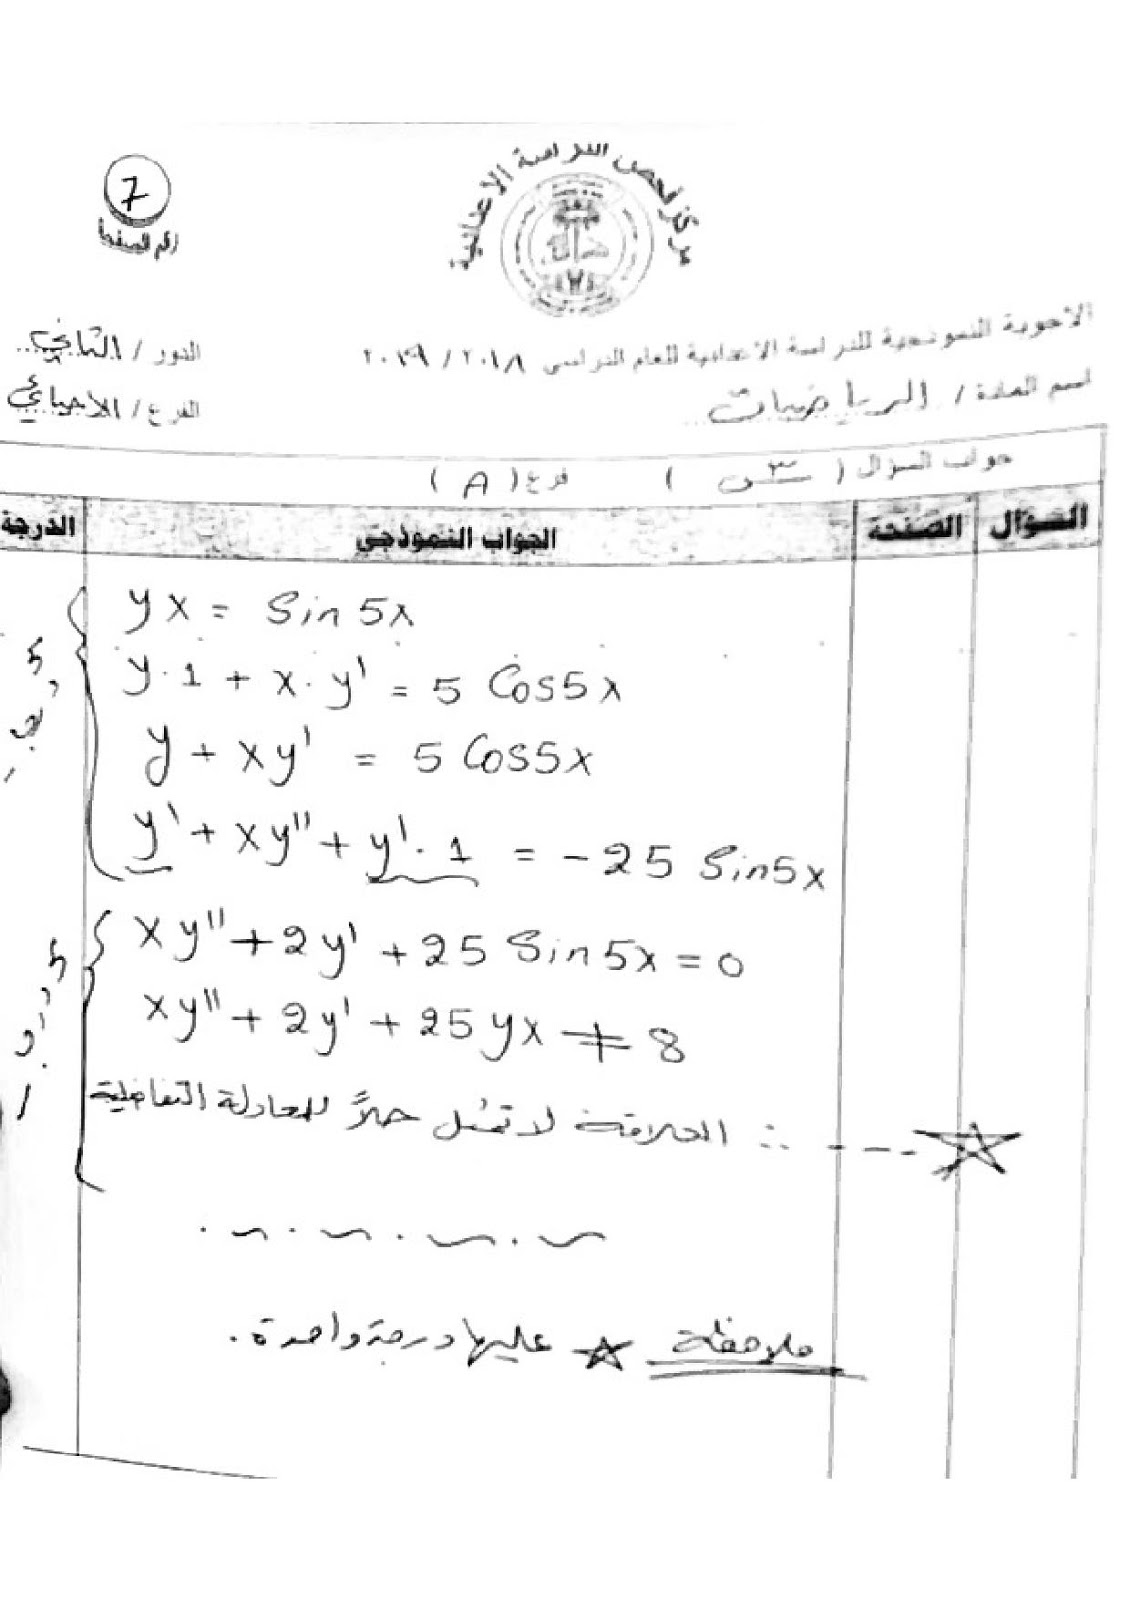 7
رقم الصفحة
مركز فحص الدراسة الاعدادية
الاجوبة النموذجية للدراسة الاعدادية للعام الدراسي ٢٠١٨ / ٢٠١٩
الدور / الثاني
اسم المادة / الرياضيات
الفرع / الاحيائي
جواب السؤال ( س٣ ) فرع ( A )
السؤال الصفحة الجواب النموذجي الدرجة
yx = Sin 5x
y·1 + x·y' = 5 Cos5x
y + xy' = 5 Cos5x
y' + xy'' + y'·1 = -25 Sin5x
5 درجات
xy'' + 2y' + 25 Sin5x = 0
xy'' + 2y' + 25yx ≠ 8
∴ العلاقة لا تمثل حلاً للمعادلة التفاضلية
5 درجات
ملاحظة ☆ عليها درجة واحدة.